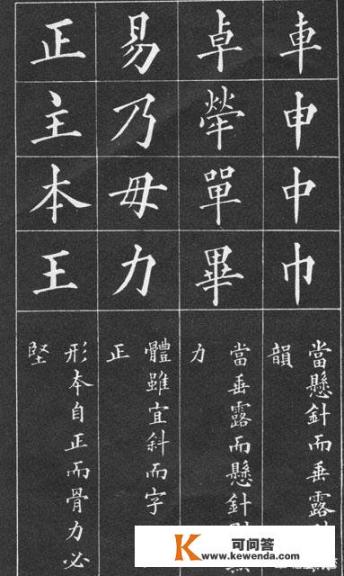 車申中巾
當懸針而垂露
韻
卓犖單畢
當垂露而懸針
力
易乃毋力
體雖宜斜而字
正
正主本王
形本自正而骨力必
堅
K 可问答
www.kewenda.com